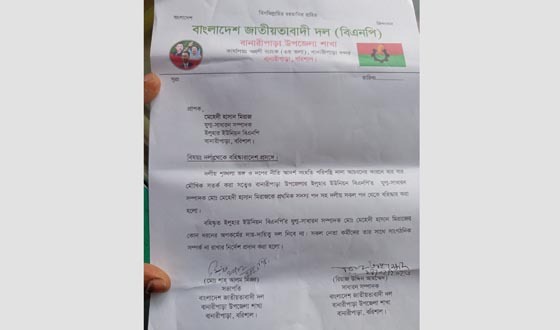 বিসমিল্লাহির রহমানির রাহিম
বাংলাদেশ
জিন্দাবাদ
বাংলাদেশ জাতীয়তাবাদী দল (বিএনপি)
বানারীপাড়া উপজেলা শাখা
বানারীপাড়া, বরিশাল।
সূত্র
তারিখ
প্রাপক,
মেহেদী হাসান মিরাজ
যুগ্ম-সাধারন সম্পাদক
ইলুহার ইউনিয়ন বিএনপি
বানারীপাড়া, বরিশাল।
বিষয়ঃ দল থেকে বহিষ্কারাদেশ প্রসঙ্গে
দলীয় শৃঙ্খলা ভঙ্গ ও দলের নীতি আদর্শ সংহতি পরিপন্থি নানা অনাচারের কারনে বার বার
মৌখিক সতর্ক করা সত্ত্বেও বানারীপাড়া উপজেলার ইলুহার ইউনিয়ন বিএনপি'র যুগ্ম-সাধারন
সম্পাদক মোঃ মেহেদী হাসান মিরাজকে প্রাথমিক সদস্য পদ সহ দলীয় সকল পদ থেকে বহিষ্কার করা
হলো।
বহিষ্কৃত ইলুহার ইউনিয়ন বিএনপি'র যুগ্ম-সাধারন সম্পাদক মোঃ মেহেদী হাসান মিরাজের
কোন ধরনের অপকর্মের দায়-দায়িত্ব দল নিবে না। সকল নেতা কর্মীদের তার সাথে সাংগঠনিক
সম্পর্ক না রাখার নির্দেশ প্রদান করা হলো।
(মোঃ শাহ আলম মিঞা)
সভাপতি
বাংলাদেশ জাতীয়তাবাদী দল
বানারীপাড়া উপজেলা শাখা
বানারীপাড়া, বরিশাল।
(রিয়াজ উদ্দিন আহমেদ)
সাধারন সম্পাদক
বাংলাদেশ জাতীয়তাবাদী দল
বানারীপাড়া উপজেলা শাখা
বানারীপাড়া, বরিশাল।